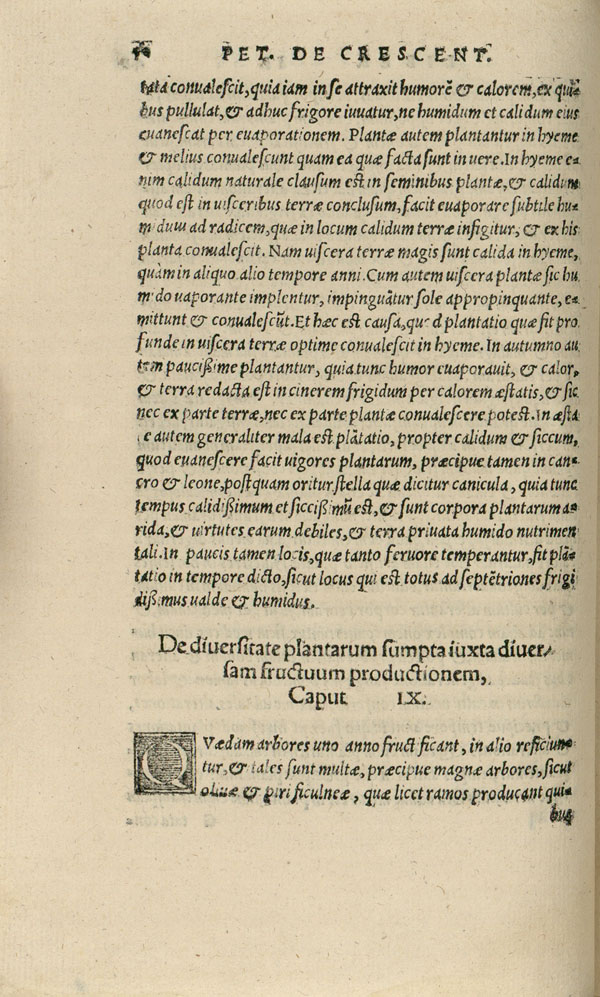 PET. DE CRESCENT.
tata conualescit, quia iam in se attraxit humorẽ & calorem, ex qui
bus pullulat, & adhuc frigore iuuatur, ne humidum et calidum eius
euanescat per euaporationem. Plantæ autem plantantur in hyeme
& melius conualescunt quam ea quæ facta sunt in uere. In hyeme e-
nim calidum naturale clausum est in seminibus plantæ, & calidum
quod est in uisceribus terræ conclusum, facit euaporare subtile hu-
midum ad radicem, quæ in locum calidum terræ infigitur, & ex his
planta conualescit. Nam uiscera terræ magis sunt calida in hyeme,
quàm in aliquo alio tempore anni. Cum autem uiscera plantæ sic hu
mido uaporante implentur, impinguãtur sole appropinquante, e-
mittunt & conualescũt. Et hæc est causa, quod plantatio quæ fit pro
funde in uiscera terræ optime conualescit in hyeme. In autumno au
tem paucissime plantantur, quia tunc humor euaporauit, & calor,
& terra redacta est in cinerem frigidum per calorem æstatis, & sic
nec ex parte terræ, nec ex parte plantæ conualescere potest. In æsta
te autem generaliter mala est plãtatio, propter calidum & siccum,
quod euanescere facit uigores plantarum, præcipue tamen in can-
cro & leone, postquam oritur stella quæ dicitur canicula, quia tunc
tempus calidißimum et siccißimũ est, & sunt corpora plantarum a-
rida, & uirtutes earum debiles, & terra priuata humido nutrimen
tali. In paucis tamen locis, quæ tanto feruore temperantur, fit plã
tatio in tempore dicto, sicut locus qui est totus ad septẽtriones frigi
dißimus ualde & humidus.
De diuersitate plantarum sumpta iuxta diuer-
sam fructuum productionem,
Caput IX.
QVædam arbores uno anno fructificant, in alio reficiun-
tur, & tales sunt multæ, præcipue magnæ arbores, sicut
oliuæ & piri ficulneæ, quæ licet ramos producant qui-
bus